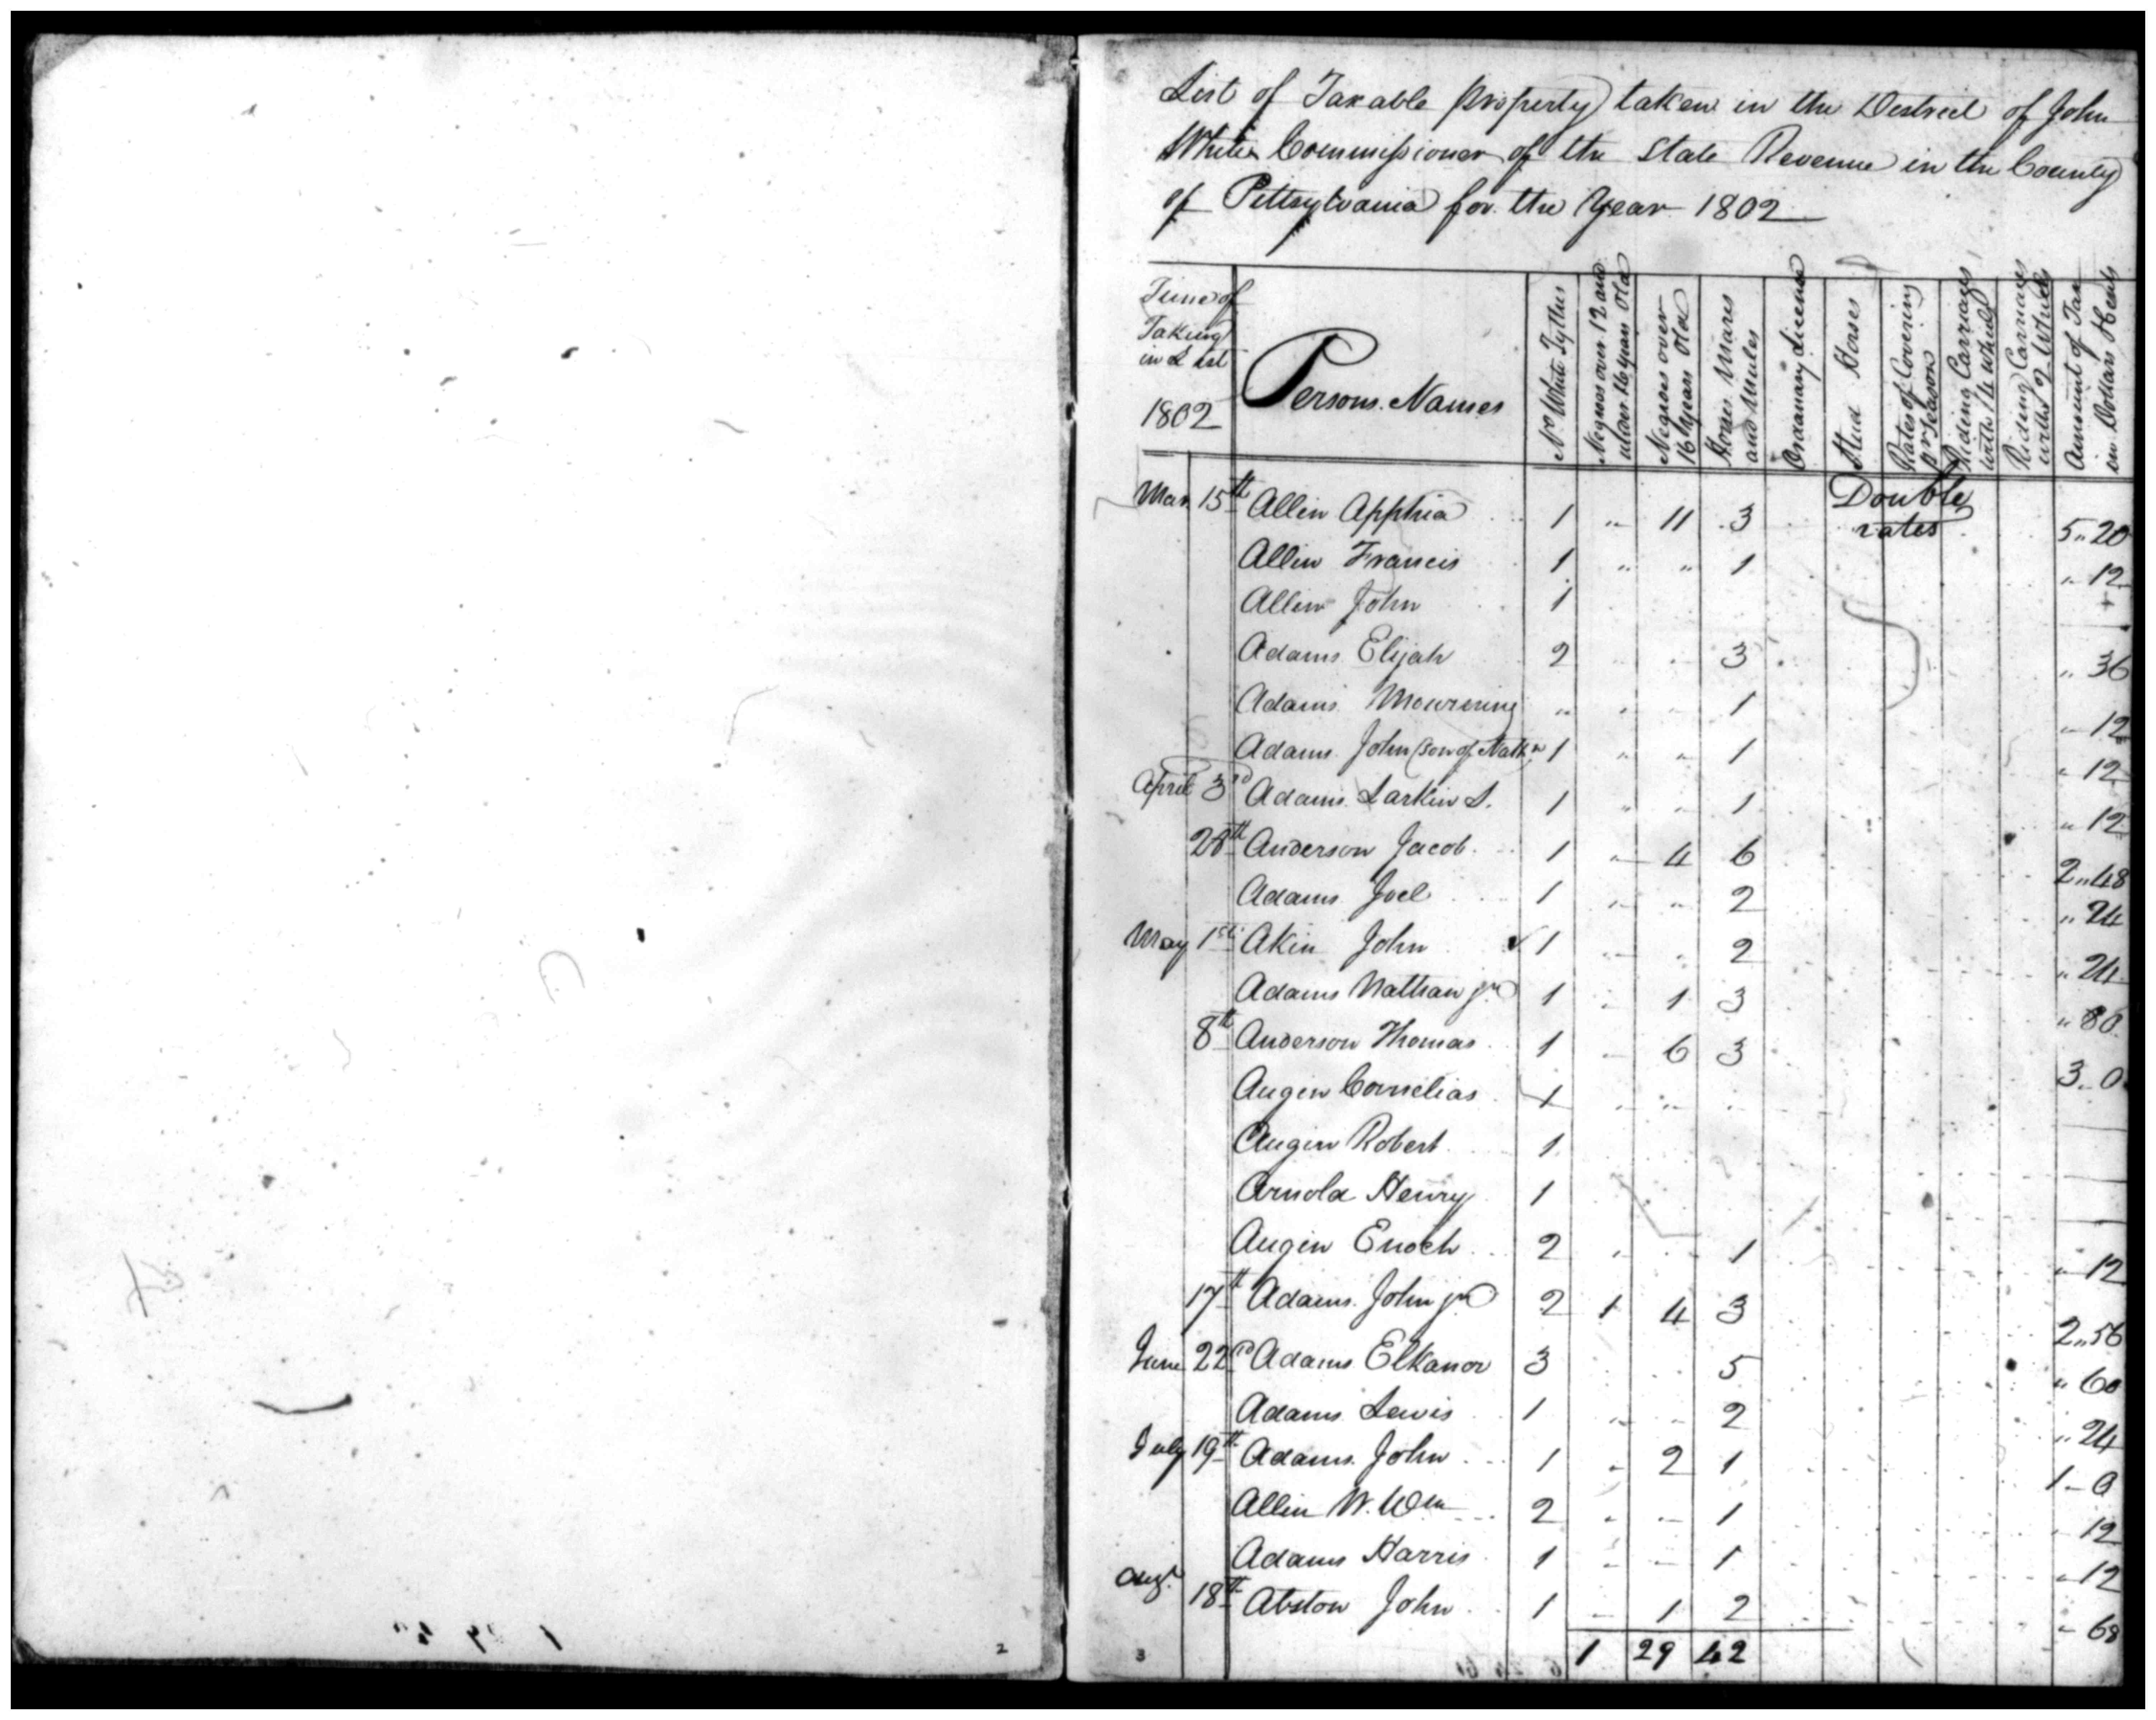 List of Taxable property taken in the District of John
White Commissioner of the State Revenue in the County
of Pittsylvania for the Year 1802
Time of
Taking
in List
1802
Persons Names
No White Tythes
Negroes over 12 and
under 16 years Old
Negroes over
16 years Old
Horses Mares
and Mules
Ordanary license
Stud Horses
Rates of Covering
pr Season
Riding Carriages
with 4 wheels
Riding Carriages
with 2 Wheels
Amount of Tax
in Dollars & Cents
Mar. 15th Allin Apphia 1 " 11 3 Double rates 5"20
Allin Francis 1 " " 1 " 12
Allin John 1
Adams Elijah 2 " 3 " 36
Adams Mourning " " " 1 " 12
Adams John (son of Nathn 1 " " 1 " 12
April 3rd Adams Larkin S. 1 " " 1 " 12
28th Anderson Jacob 1 " 4 6 2"48
Adams Joel 1 " " 2 " 24
May 1st Akin John 1 " " 2 " 24
Adams Nathan jr 1 " 1 3 " 80
8th Anderson Thomas 1 " 6 3 3"0
Augin Cornelias 1 " "
Augin Robert 1
Arnold Henry 1
Augin Enoch 2 " 1 " 12
17th Adams John jr 2 1 4 3 2"56
June 22d Adams Elkanor 3 5 " 60
Adams Lewis 1 " " 2 " 24
July 19th Adams John 1 " 2 1 1"0
Allin W. Wm 2 " " 1 12
Adams Harris 1 " " 1 " 12
Augt 18th Abston John 1 " 1 2 " 68
1 29 42
2
3